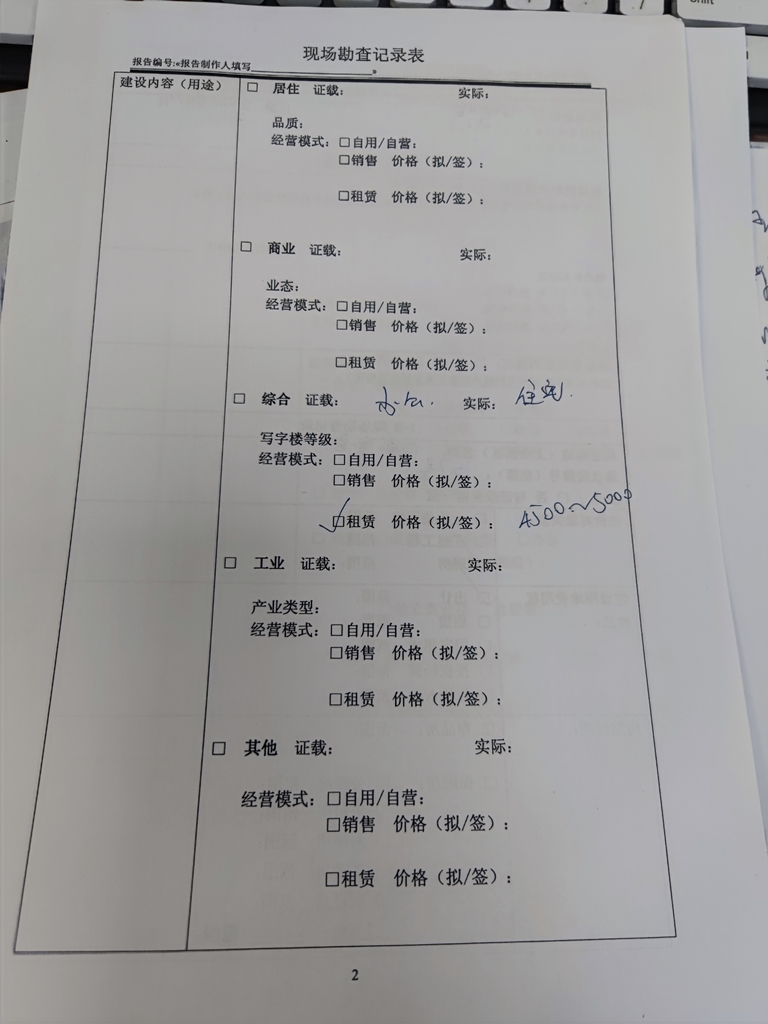 现场勘查记录表
报告编号:«报告制作人填写»
建设内容（用途）
□ 居住 证载： 实际：
品质：
经营模式：□自用/自营：
□销售 价格（拟/签）：
□租赁 价格（拟/签）：
□ 商业 证载： 实际：
业态：
经营模式：□自用/自营：
□销售 价格（拟/签）：
□租赁 价格（拟/签）：
□ 综合 证载： 实际： 住宅.
写字楼等级：
经营模式：□自用/自营：
□销售 价格（拟/签）：
✓□租赁 价格（拟/签）： 4500~5000
□ 工业 证载： 实际：
产业类型：
经营模式：□自用/自营：
□销售 价格（拟/签）：
□租赁 价格（拟/签）：
□ 其他 证载： 实际：
经营模式：□自用/自营：
□销售 价格（拟/签）：
□租赁 价格（拟/签）：
2